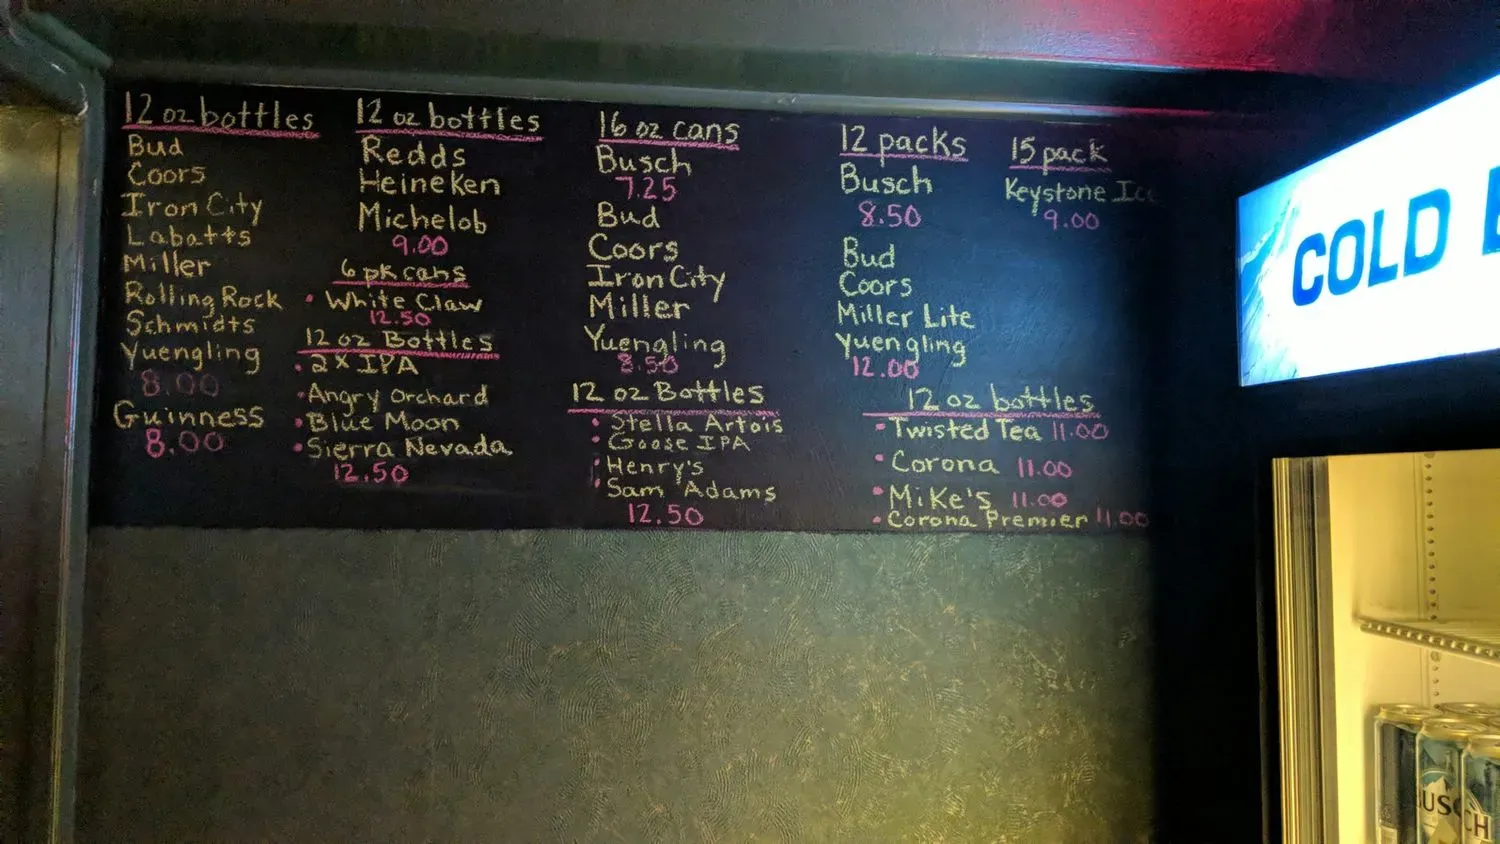 12 oz bottles
Bud
Coors
Iron City
Labatts
Miller
Rolling Rock
Schmidts
Yuengling
8.00
Guinness
8.00
12 oz bottles
Redds
Heineken
Michelob
9.00
6 pk cans
• White Claw
12.50
12 oz Bottles
• 2X IPA
• Angry Orchard
• Blue Moon
• Sierra Nevada
12.50
16 oz cans
Busch
7.25
Bud
Coors
Iron City
Miller
Yuengling
8.50
12 oz Bottles
• Stella Artois
• Goose IPA
• Henry's
• Sam Adams
12.50
12 packs
Busch
8.50
Bud
Coors
Miller Lite
Yuengling
12.00
15 pack
Keystone Ice
9.00
12 oz bottles
• Twisted Tea 11.00
• Corona 11.00
• Mike's 11.00
• Corona Premier 11.00
COLD
BUSCH